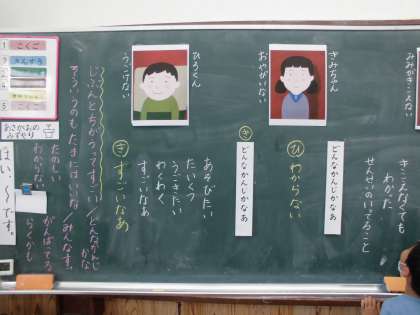 みみがきこえない
きこえなくても
わかった
せんせいのいってること
どんなかんじかなあ
きみちゃん
おやがいない
ひ
わからない
どんなかんじかなあ
き
ひろくん
うごけない
あそびたい
たいくつ
うごきたい
わくわく
すごいなあ
き
すごいなあ
じぶんとちがうってすごい/どんなかんじかな
たのしい
わからない
がんばってる
らくかも
1 こくご
2 さんすう
3
4
5
あさがおの
みずやり
はい、～です。